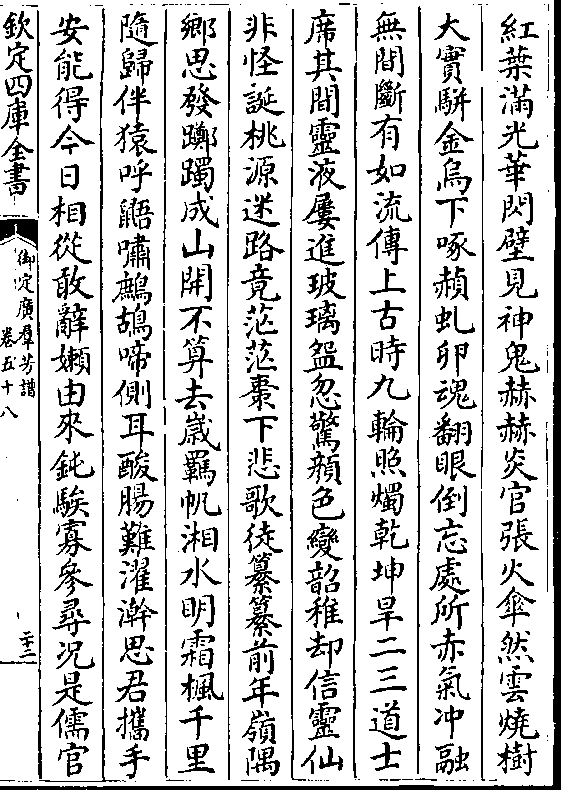 紅葉滿光華閃壁見神鬼赫赫炎官張火傘然雲燒樹
大實駢金烏下啄赬虬卵魂翻眼倒忘處所赤氣冲融
無間斷有如流傳上古時九輪照燭乾坤旱二三道士
席其間靈液屢進玻璃盌忽驚顔色變韶稚却信靈仙
非怪誕桃源迷路竟茫茫棗下悲歌徒纂纂前年嶺隅
鄉思發躑躅成山開不算去嵗羈帆湘水明霜楓千里
隨歸伴猿呼鼯嘯鷓鴣啼側耳酸腸難濯澣思君攜手
安能得今日相從敢辭嬾由來鈍騃寡參尋况是儒官
欽定四庫全書
御定廣羣芳譜
卷五十八
二十二